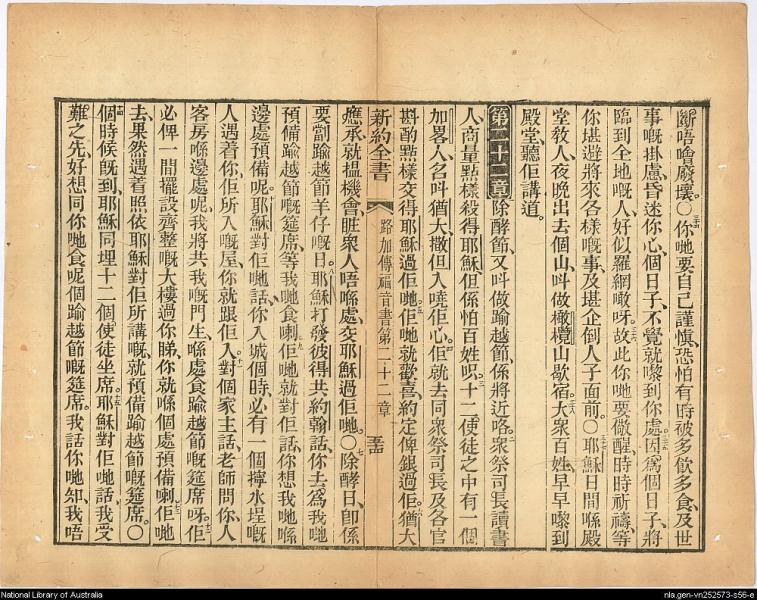 斷唔噲廢壞。○你哋要自己謹慎、恐怕有時被多飲多食、及世
事嘅掛慮、昏迷你心、個日子、不覺就嚟到你處、因爲個日子、將
臨到全地嘅人、好似羅網噉呀、故此你哋要儆醒、時時祈禱、等
你堪避將來各樣嘅事、及堪企倒人子面前。○耶穌日間喺殿
堂敎人、夜晚出去個山、叫做橄欖山歇宿、大衆百姓、早早嚟到
殿堂、聽佢講道。
第二十二章 除酵節、又叫做踰越節、係將近咯。衆祭司長讀書
人、商量點樣殺得耶穌、但係怕百姓呮。十二使徒之中有一個
加畧人、名叫猶大、撒但入嘵佢心、佢就去同衆祭司長及各官
斟酌點樣交得耶穌過佢哋、佢哋就歡喜、約定俾銀過佢、猶大
新約全書 路加傳福音書第二十二章
應承就揾機會、衆人唔喺處、交耶穌過佢哋。○除酵日、卽係
要劏踰越節羊仔嘅日。耶穌打發彼得共約翰話、你去、爲我哋
預備踰越節嘅筵席、等我哋食喇。佢哋就對佢話、你想我哋喺
邊處預備呢。耶穌對佢哋話、你入城個時、必有一個擰水埕嘅
人遇着你、佢所入嘅屋、你就跟佢入。對個家主話、老師問你、人
客房喺邊處呢、我將共我嘅門生喺處食踰越節嘅筵席呀。佢
必俾一間擺設齊整嘅大樓過你睇、你就喺個處預備喇。佢哋
去、果然遇着照依耶穌對佢所講嘅、就預備踰越節嘅筵席。○
個時候旣到、耶穌同埋十二個使徒坐席。耶穌對佢哋話、我受
難之先、好想同你哋食呢個踰越節嘅筵席。我話你哋知、我唔
National Library of Australia
nla.gen-vn252573-s56-e